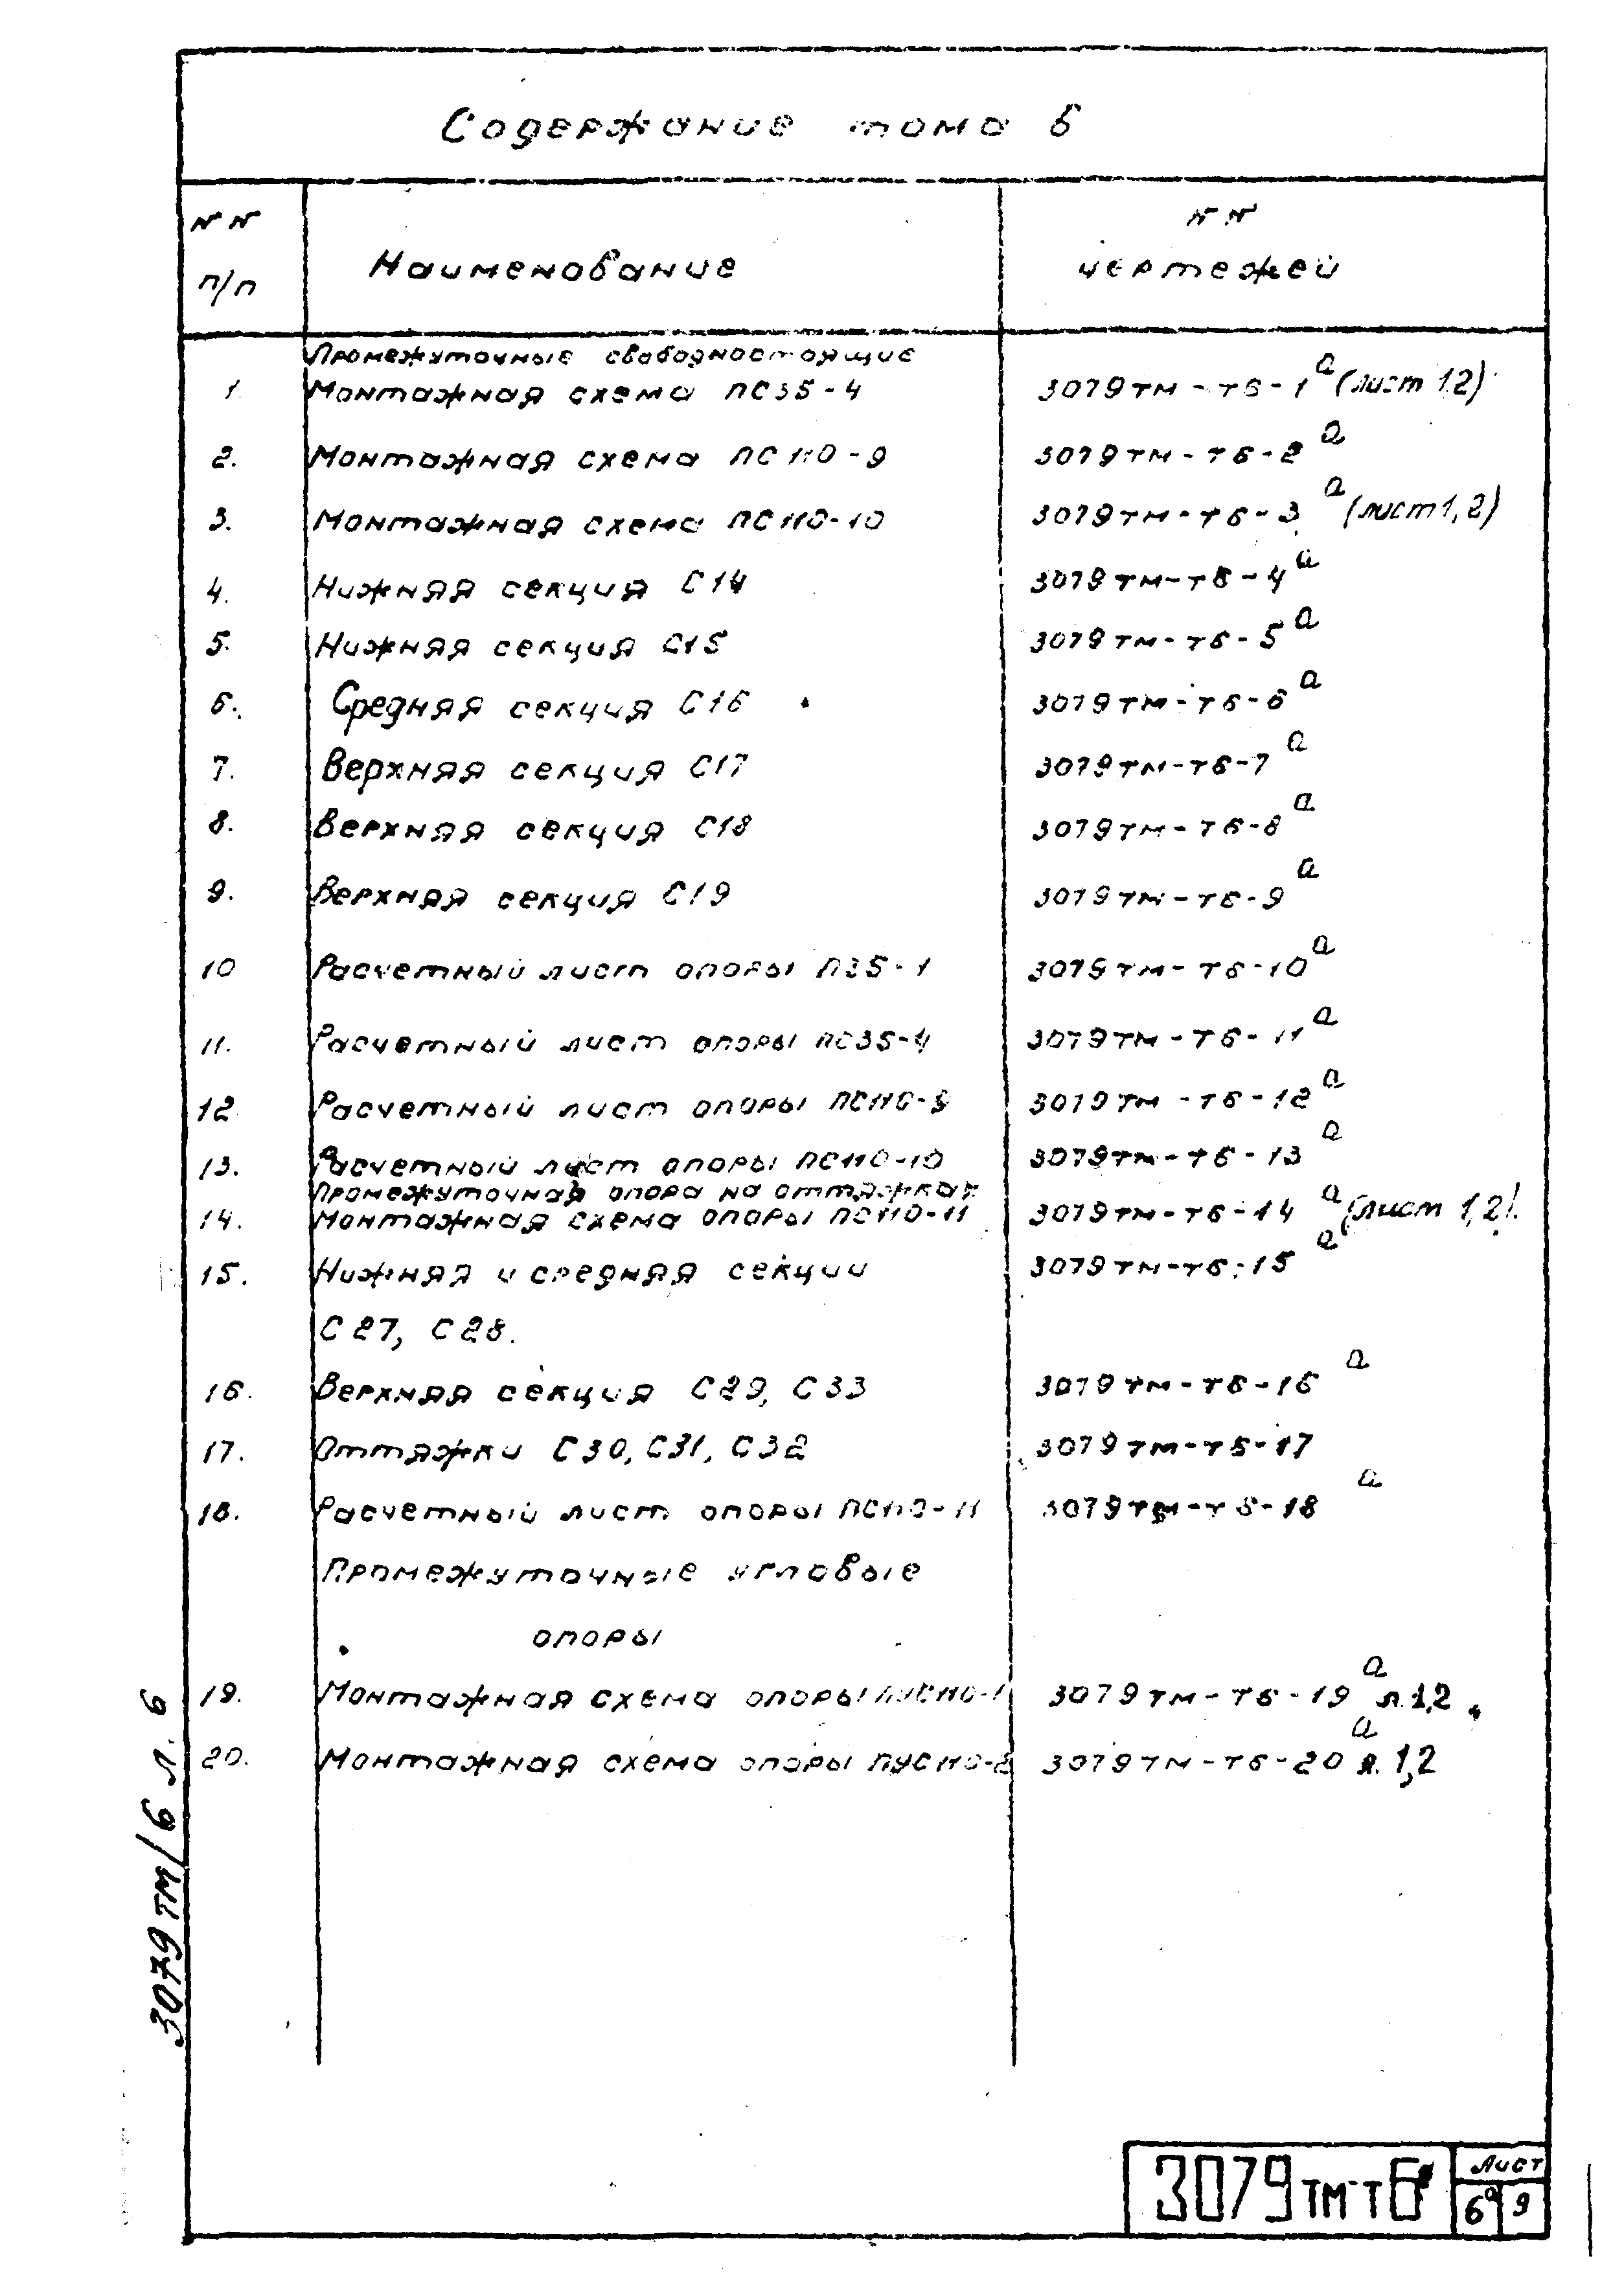 Содержание тома 6
NN п/п Наименование NN чертежей
Промежуточные свободностоящие
1. Монтажная схема ПС35-4 3079тм-т6-1а (лист 1,2)
2. Монтажная схема ПС110-9 3079тм-т6-2а
3. Монтажная схема ПС110-10 3079тм-т6-3а (лист 1,2)
4. Нижняя секция С14 3079тм-т6-4а
5. Нижняя секция С15 3079тм-т6-5а
6. Средняя секция С16 3079тм-т6-6а
7. Верхняя секция С17 3079тм-т6-7а
8. Верхняя секция С18 3079тм-т6-8а
9. Верхняя секция С19 3079тм-т6-9а
10 Расчетный лист опоры П35-1 3079тм-т6-10а
11. Расчетный лист опоры ПС35-4 3079тм-т6-11а
12 Расчетный лист опоры ПС110-9 3079тм-т6-12а
13. Расчетный лист опоры ПС110-10 3079тм-т6-13а
Промежуточная опора на оттяжках
14. Монтажная схема опоры ПС110-11 3079тм-т6-14а (лист 1,2).
15. Нижняя и средняя секции 3079тм-т6-15а
С27, С28.
16. Верхняя секция С29, С33 3079тм-т6-16а
17. Оттяжки С30, С31, С32 3079тм-т6-17
18. Расчетный лист опоры ПС110-11 3079тм-т6-18а
Промежуточные угловые
опоры
19. Монтажная схема опоры ПУС110-1 3079тм-т6-19а л.1,2
20. Монтажная схема опоры ПУС110-2 3079тм-т6-20а л.1,2
3079тм/6 л.6
3079тм-т6 Лист
6а 9